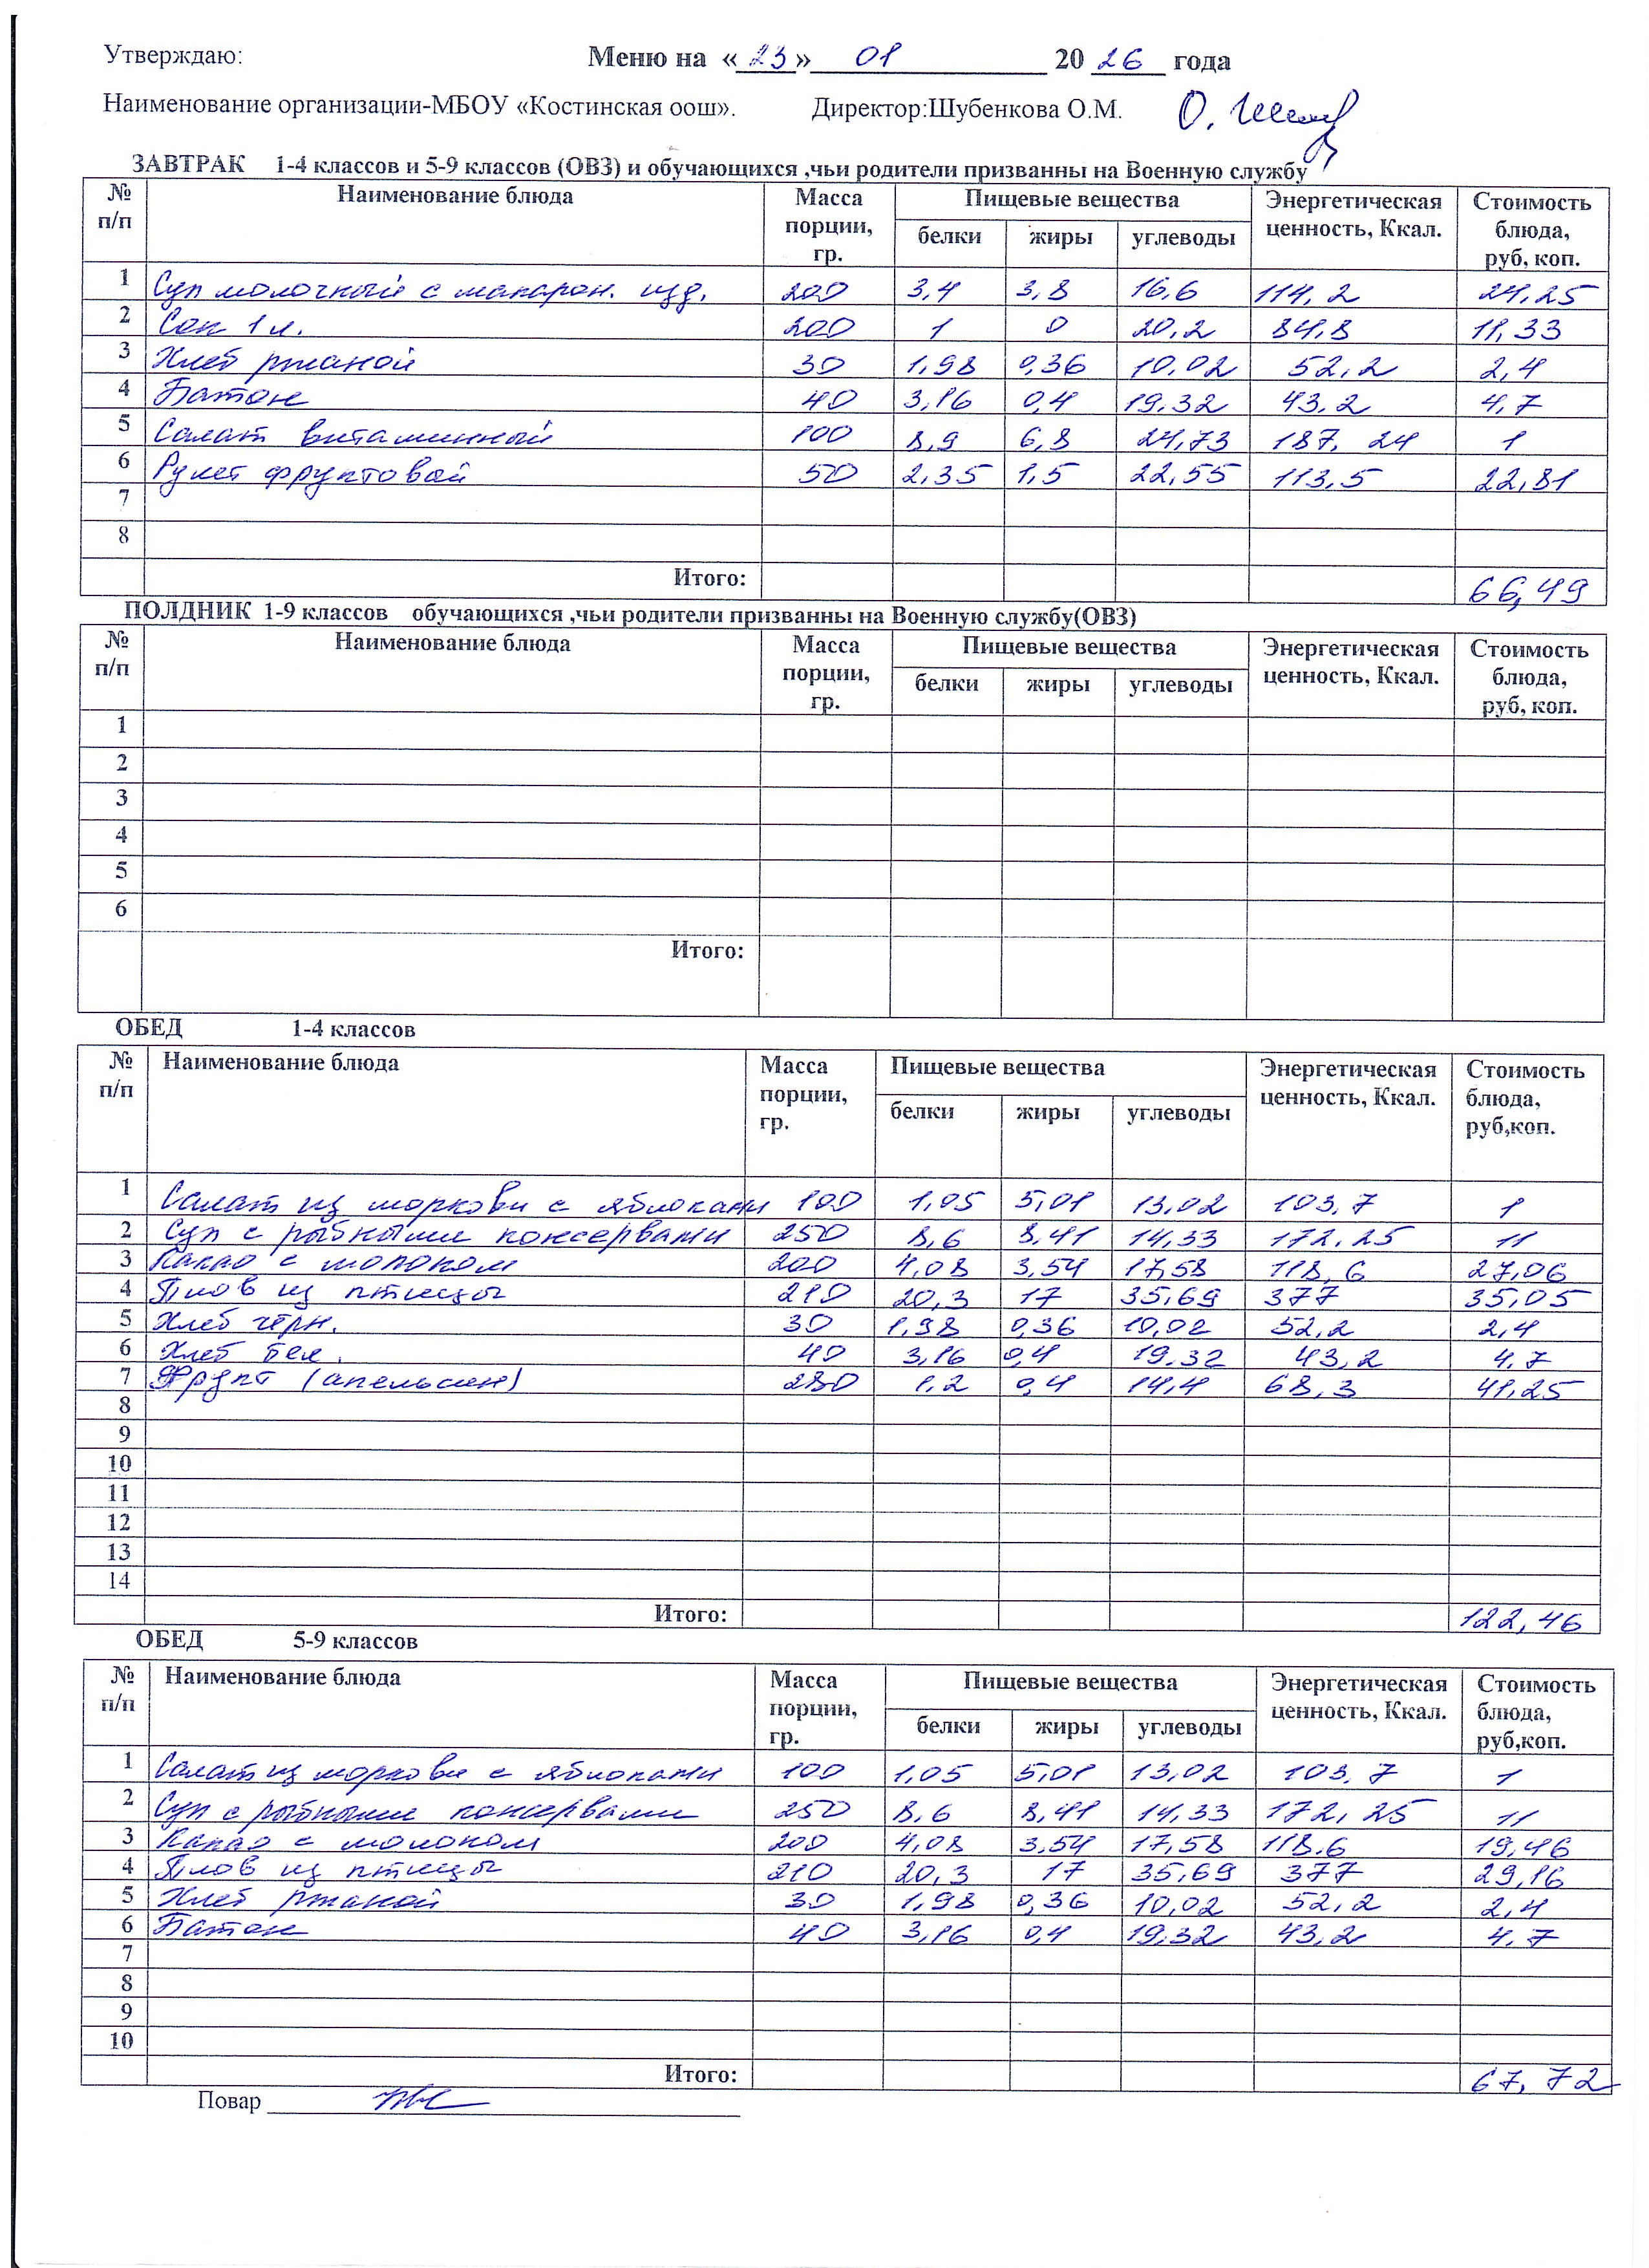 Утверждаю: Меню на «23» 01 2026 года
Наименование организации-МБОУ «Костинская оош». Директор:Шубенкова О.М.
ЗАВТРАК 1-4 классов и 5-9 классов (ОВЗ) и обучающихся ,чьи родители призванны на Военную службу
№ п/п Наименование блюда Масса порции, гр. Пищевые вещества Энергетическая ценность, Ккал. Стоимость блюда, руб, коп.
белки жиры углеводы
1 Суп молочный с макарон. изд. 200 3,4 3,8 16,6 114,2 24,25
2 Сок 1 л. 200 1 0 20,2 84,8 11,33
3 Хлеб ржаной 30 1,98 0,36 10,02 52,2 2,4
4 Батон 40 3,16 0,4 19,32 43,2 4,7
5 Салат витаминный 100 8,9 6,8 24,73 187,24 1
6 Рулет фруктовой 50 2,35 1,5 22,55 113,5 22,81
7
8
Итого: 66,49
ПОЛДНИК 1-9 классов обучающихся ,чьи родители призванны на Военную службу(ОВЗ)
№ п/п Наименование блюда Масса порции, гр. Пищевые вещества Энергетическая ценность, Ккал. Стоимость блюда, руб, коп.
белки жиры углеводы
1
2
3
4
5
6
Итого:
ОБЕД 1-4 классов
№ п/п Наименование блюда Масса порции, гр. Пищевые вещества Энергетическая ценность, Ккал. Стоимость блюда, руб,коп.
белки жиры углеводы
1 Салат из моркови с яблоками 100 1,05 5,01 13,02 103,7 1
2 Суп с рыбными консервами 250 8,6 8,41 14,33 172,25 11
3 Какао с молоком 200 4,08 3,54 17,58 118,6 27,06
4 Плов из птицы 210 20,3 17 35,69 377 35,05
5 Хлеб чёрн. 30 1,98 0,36 10,02 52,2 2,4
6 Хлеб бел. 40 3,16 0,4 19,32 43,2 4,7
7 Фрукт (апельсин) 280 1,2 0,4 14,4 68,3 41,25
8
9
10
11
12
13
14
Итого: 122,46
ОБЕД 5-9 классов
№ п/п Наименование блюда Масса порции, гр. Пищевые вещества Энергетическая ценность, Ккал. Стоимость блюда, руб,коп.
белки жиры углеводы
1 Салат из моркови с яблоками 100 1,05 5,01 13,02 103,7 1
2 Суп с рыбными консервами 250 8,6 8,41 14,33 172,25 11
3 Какао с молоком 200 4,08 3,54 17,58 118,6 19,46
4 Плов из птицы 210 20,3 17 35,69 377 29,16
5 Хлеб ржаной 30 1,98 0,36 10,02 52,2 2,4
6 Батон 40 3,16 0,4 19,32 43,2 4,7
7
8
9
10
Итого: 67,72
Повар